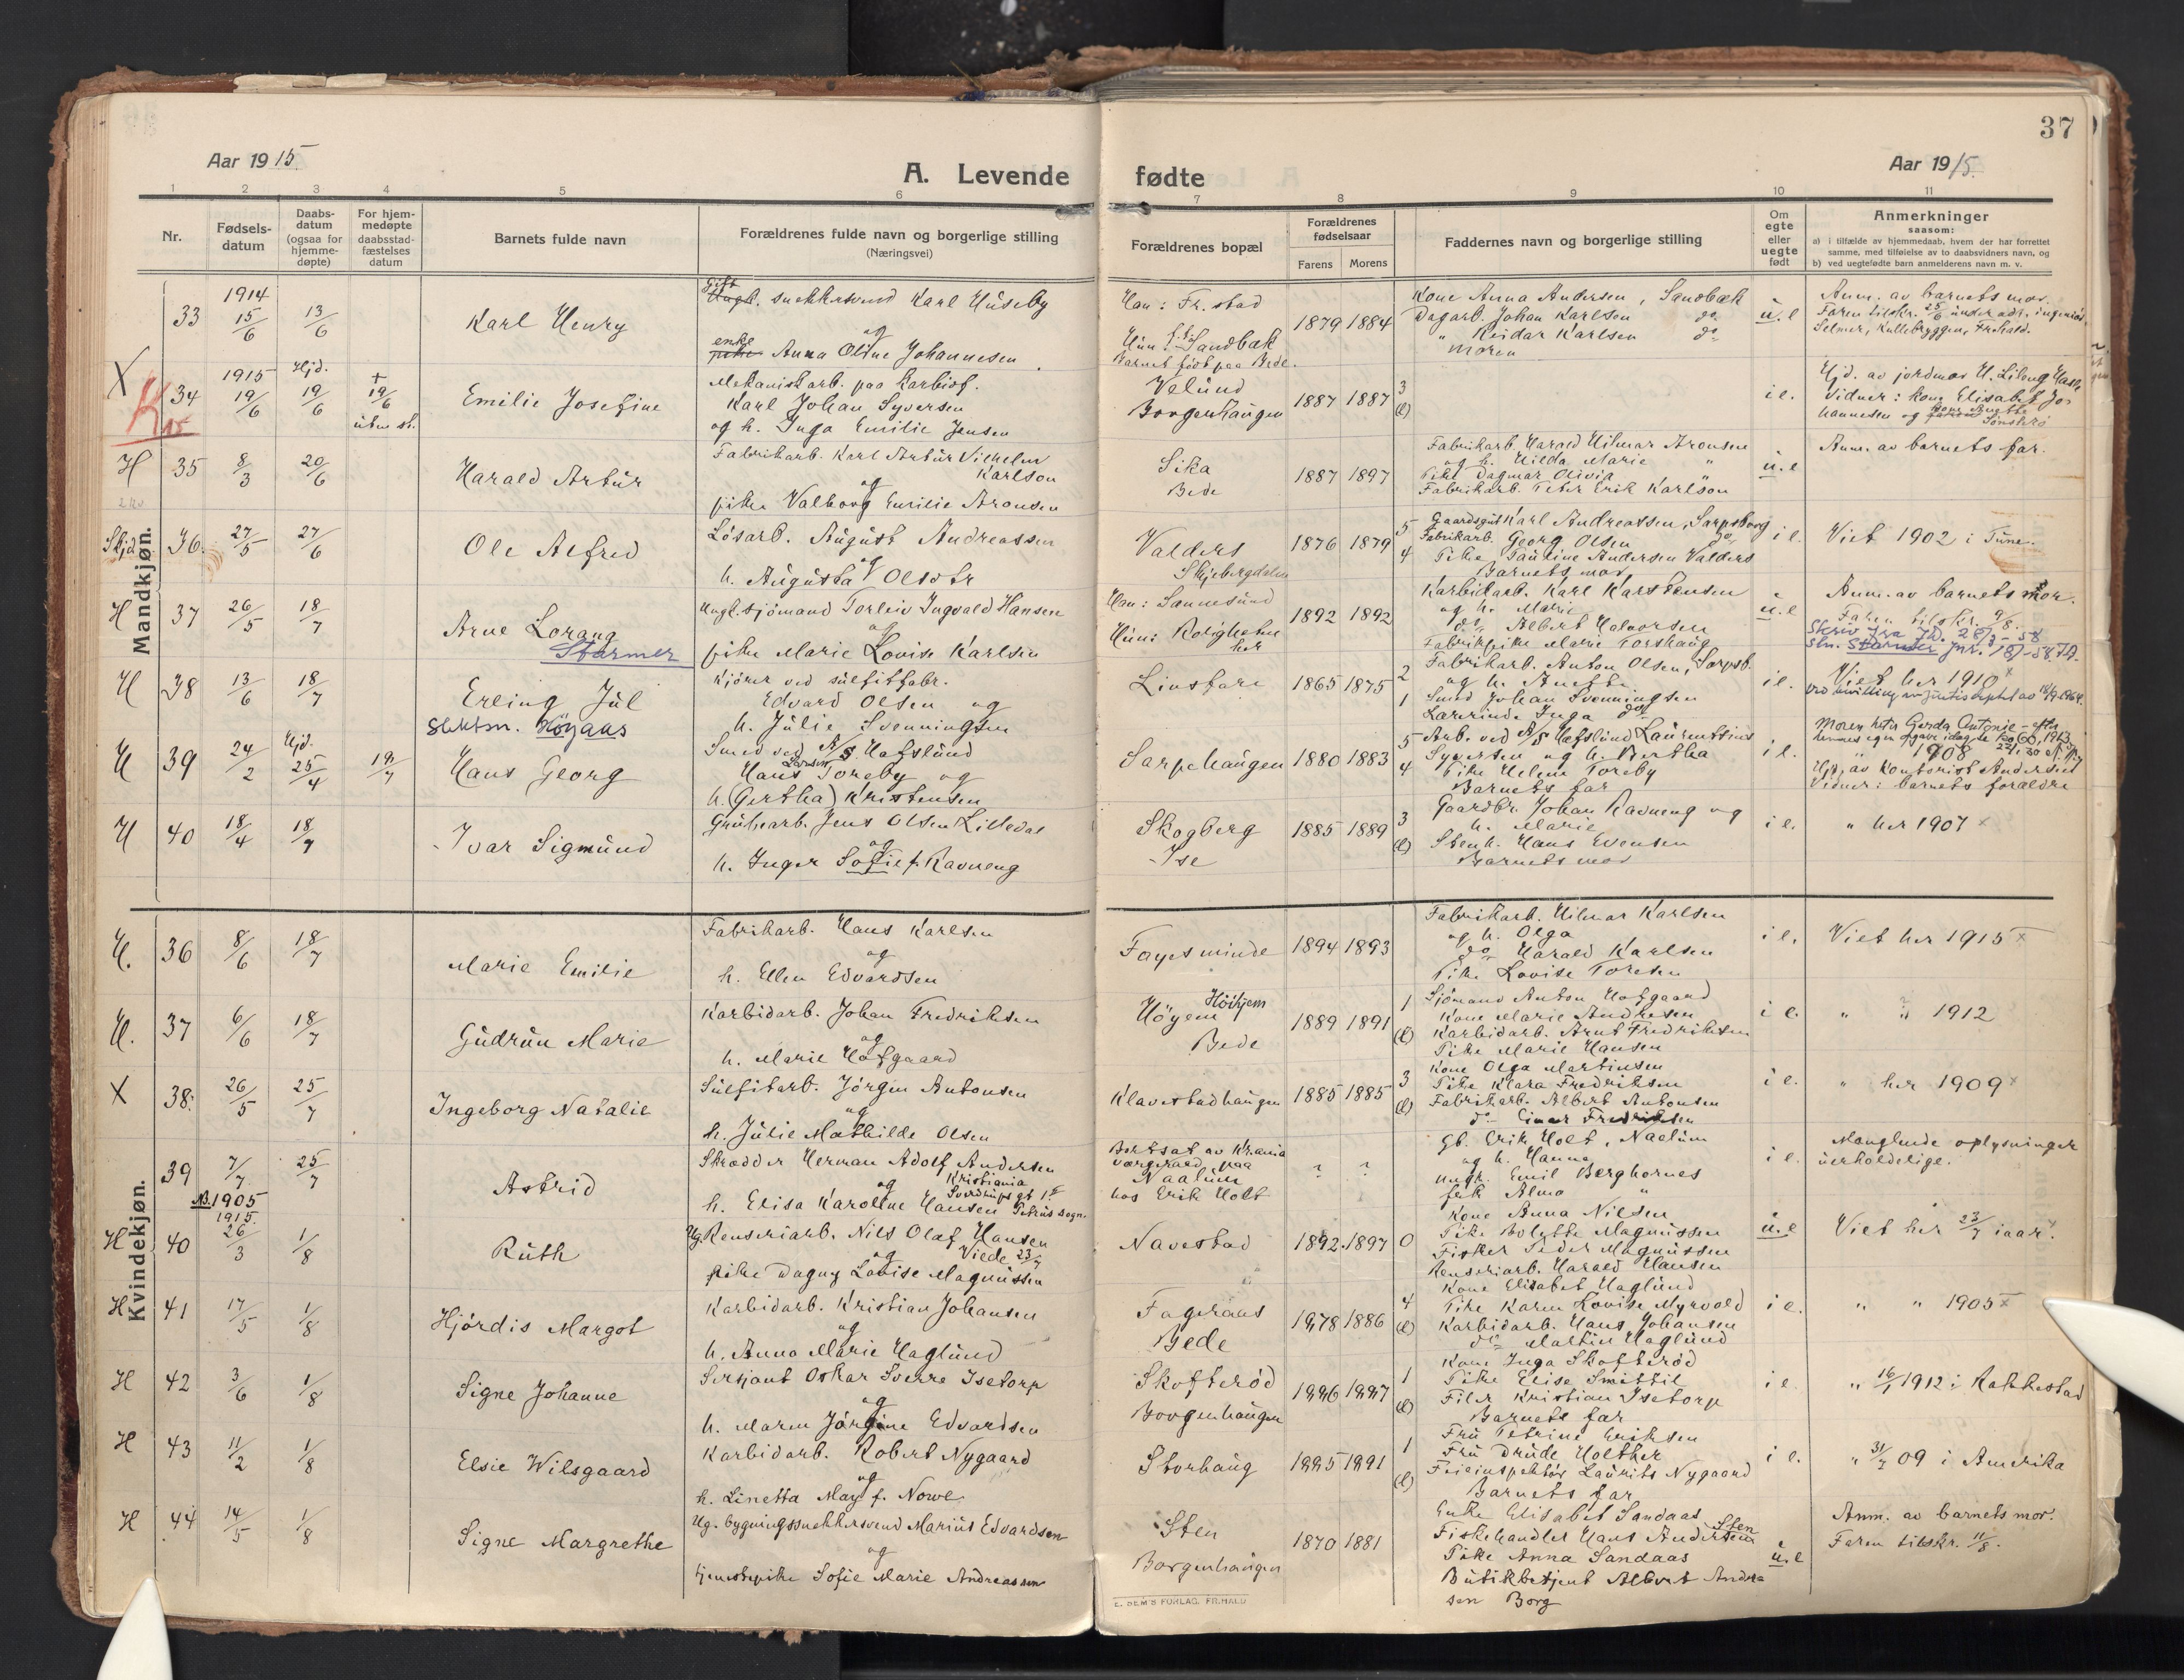 37
Aar 1915.
A. Levende
fødte
Aar 1915.
1 2 3 4 5 6 7 8 9 10 11
Nr.
Fødsels-
datum
Daabs-
datum
(ogsaa for
hjemme-
døpte)
For hjem-
medøpte
daabsstad-
fæstelses
datum
Barnets fulde navn
Forældrenes fulde navn og borgerlige stilling
(Næringsvei)
Forældrenes bopæl
Forældrenes
fødselsaar
Farens Morens
Faddernes navn og borgerlige stilling
Om
egte
eller
uegte
født
Anmerkninger
saasom:
a) i tilfælde av hjemmedaab, hvem der har forrettet
samme, med tilføielse av to daabsvidners navn, og
b) ved uegtefødte barn anmelderens navn m. v.
Mandkjøn.
33 1914 15/6 13/6
Karl Henry
Gift
Ungk. snekkersvend Karl Huseby
og
enke
pike Anna Oline Johannesen
Han: Fr.stad
Hun: Sandbæk
Barnet født paa Bede.
1879 1884
Kone Anna Andersen, Sandbæk
Dagarb. Johan Karlsen do
" Reidar Karlsen do
Moren
u.e
Anm. av barnets mor.
Faren tilskr. 25/6 under adr. ingeniør
Selmer, Kullebryggen, Fr.hald.
X
34 1915 19/6 Hjd. 19/6 + 19/6
Emilie Josefine
Mekanisk arb. paa Karbidf.
Karl Johan Syversen
og h. Inga Emilie Jensen
Velund
Borgenhaugen
1887 1887 3
(l)
i e.
Hjd. av jordmor H. Liberg Hasle
Vidner: kone Elisabet Jo-
hannesen og
H 35 8/3 20/6
Harald Artur
Fabrikarb. Karl Artur Vilhelm
Karlson
og
pike Valborg Emilie Aronsen
Sika
Bede
1887 1897
Fabrikarb. Harald Hilmar Aronsen
og h. Hilda Marie "
Pike Dagmar Olivia "
Fabrikarb. Peter Erik Karlson
u.e
Anm. av barnets far.
Skjd. 36. 27/5 27/6
Ole Alfred
Løsarb. August Andreassen
og
h. Augusta Olsdtr
Valders
Skjebergdalen
1876 1879 5
4
Gaardsgut Karl Andreassen, Sarpsborg
Fabrikarb. Georg Olsen do
Pike Pauline Andersen Valders
Barnets mor
i e.
Viet 1902 i Tune.
H 37 26/5 18/7
Arne Lorang
Starmer
Ungk. sjömand Torleiv Ingvald Hansen
og
pike Marie Lovise Karlsen
Han: Sannesund
Hun: Rolighetn
her
1892 1892
Karbidarb. Karl Karstensen
og h. Marie
do Albert Halvorsen
Fabrikpike Marie Torshaug
u.e
Anm. av barnets mor.
Faren tilskr. 9/8.
H 38 13/6 18/7
Erling Jul
Slektsn. Höyaas
Kjörer ved sulfitfabr.
Edvard Olsen og
h. Julie Svenningsen
Linstare
1865 1875 2
1
Fabrikarb. Anton Olsen, Sarpsb.
og h. Anette
Smed Johan Svenningsen
Lærerinde Inga do
i e.
Viet her 1910
H 39 24/2 Hjd. 25/4 18/7
Hans Georg
Smed ved A/S Hafslund
Hans Toreby og
h. (Gertha) Kristensen
Sarpehaugen
1880 1883 5
4
Arb. ved A/S Hafslund Laurentius
Syversen og h. Bertha
Pike Helene Toreby
Barnets far
i e.
Moren heter Gerda Antonie - efter
1908
Hjd. av kontorist Andersen
Vidner: barnets forældre
H 40 18/4 18/7
Ivar Sigmund
Grubearb. Jens Olsen Lilledal
og
h. Inger Sofie f. Ravneng
Skogberg
Ise
1885 1889 3
(l)
Gaardbr. Johan Ravneng og
h. Marie
Stenh. Hans Evensen
Barnets mor
i e.
" her 1907 x
Kvindekjøn.
H. 36 8/6 18/7
Marie Emilie
Fabrikarb. Hans Karlsen
og
h. Ellen Edvardsen
Fagesminde
1894 1893
Fabrikarb. Hilmar Karlsen
og h. Olga
do Harald Karlsen
Pike Lovise Toresen
i e.
Viet her 1915 x
H. 37 6/6 18/7
Gudrun Marie
Karbidarb. Johan Fredriksen
og
h. Marie Hofgaard
Höyem Höihjem
Bede
1889 1891 1
(l)
Sjömand Anton Hofgaard
Kone Marie Andresen
Karbidarb. Arnt Fredriksen
Pike Marie Hansen
i e.
" " 1912
X 38. 26/5 25/7
Ingeborg Natalie
Sulfitarb. Jörgen Antonsen
og
h. Julie Mathilde Olsen
Klavestadhaugen
1885 1885 3
(l)
Kone Olga Martinsen
Pike Klara Fredriksen
Fabrikarb. Albert Antonsen
do Einar Fredriksen
i e.
" her 1909 x
39 7/7 NB. 1905 25/7
Astrid
Skrædder Herman Adolf Andersen
og Kristiania
h. Elisa Karoline Hansen Petrus sogn.
Bortsat av Kr.ania
værgeraad paa
Naalum
hos Erik Holt
? ?
Gb. Erik Holt, Naalum
og h. Hanna
Ungk. Emil Berghornes
frk Alma "
i e.
Manglende oplysninger
uerholdelige.
H 40 1915. 26/3 1/8
Ruth
Ug. Renseriarb. Nils Olaf Hansen
og Viede 23/7
pike Dagny Lovise Magnussen
Navestad
1892. 1897 0
Kone Anna Nilsen
Pike Bolette Magnussen
Fisker Peder Magnussen
Renseriarb. Harald Hansen
u.e
Viet her 23/7 iaar.
H 41 17/5 1/8
Hjördis Margot
Karbidarb. Kristian Johansen
og
h. Anna Marie Haglund
Fageraas
Bede
1878 1886 4
(l)
Kone Elisabet Haglund
Pike Karen Lovise Myrvold
Karbidarb. Hans Johansen
do Martin Haglund
i e.
" " 1905 x
H 42 3/6 1/8
Signe Johanne
Sersjant Oskar Sverre Isetorp
og
h. Maren Jörgine Edvardsen
Skofteröd
Borgenhaugen
1886 1887 1
(l)
Kone Inga Skofteröd
Pike Elise Smittil
Filer Kristian Isetorp
Barnets far
i e.
" 16/1 1912 i Rakkestad
H 43 11/2 1/8
Elsie Wilsgaard
Karbidarb. Robert Nygaard
og
h. Linetta May f. Nowe
Storhaug
1885 1891 1
(l)
Fru Petrine Eriksen
Fru Drude Holther
Feieinspektør Laurits Nygaard
Barnets far
i e.
" 31/7 09 i Amerika
H 44 14/5 1/8
Signe Margrethe
Ug. bygningssnekkersvend Marius Edvardsen
og
tjenestepike Sofie Marie Andreassen
Sten
Borgenhaugen
1870 1881
Enke Elisabet Sandaas
Fiskehandler Hans Andersen Sten
Pike Anna Sandaas
Butikbetjent Albert Andre-
sen Borg
u.e
Anm. av barnets mor.
Faren tilskr. 11/8.
E. SEM'S FORLAG. FR.HALD